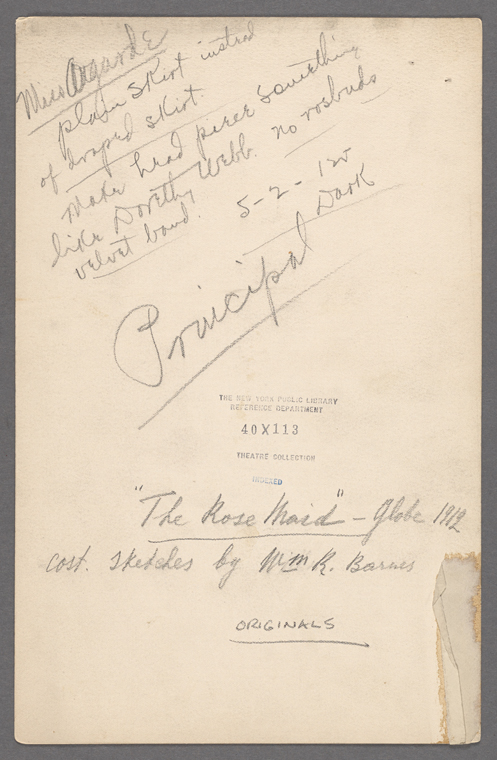 Miss Asgarde
plain skirt instead
of draped skirt.
Make head piece something
like Dorothy Webb. no rosbuds
velvet band.
5-2-120
Dark
Principal
THE NEW YORK PUBLIC LIBRARY
REFERENCE DEPARTMENT
40X113
THEATRE COLLECTION
INDEXED
"The Rose Maid" - Globe 1912
cost. sketches by Wm R. Barnes
ORIGINALS